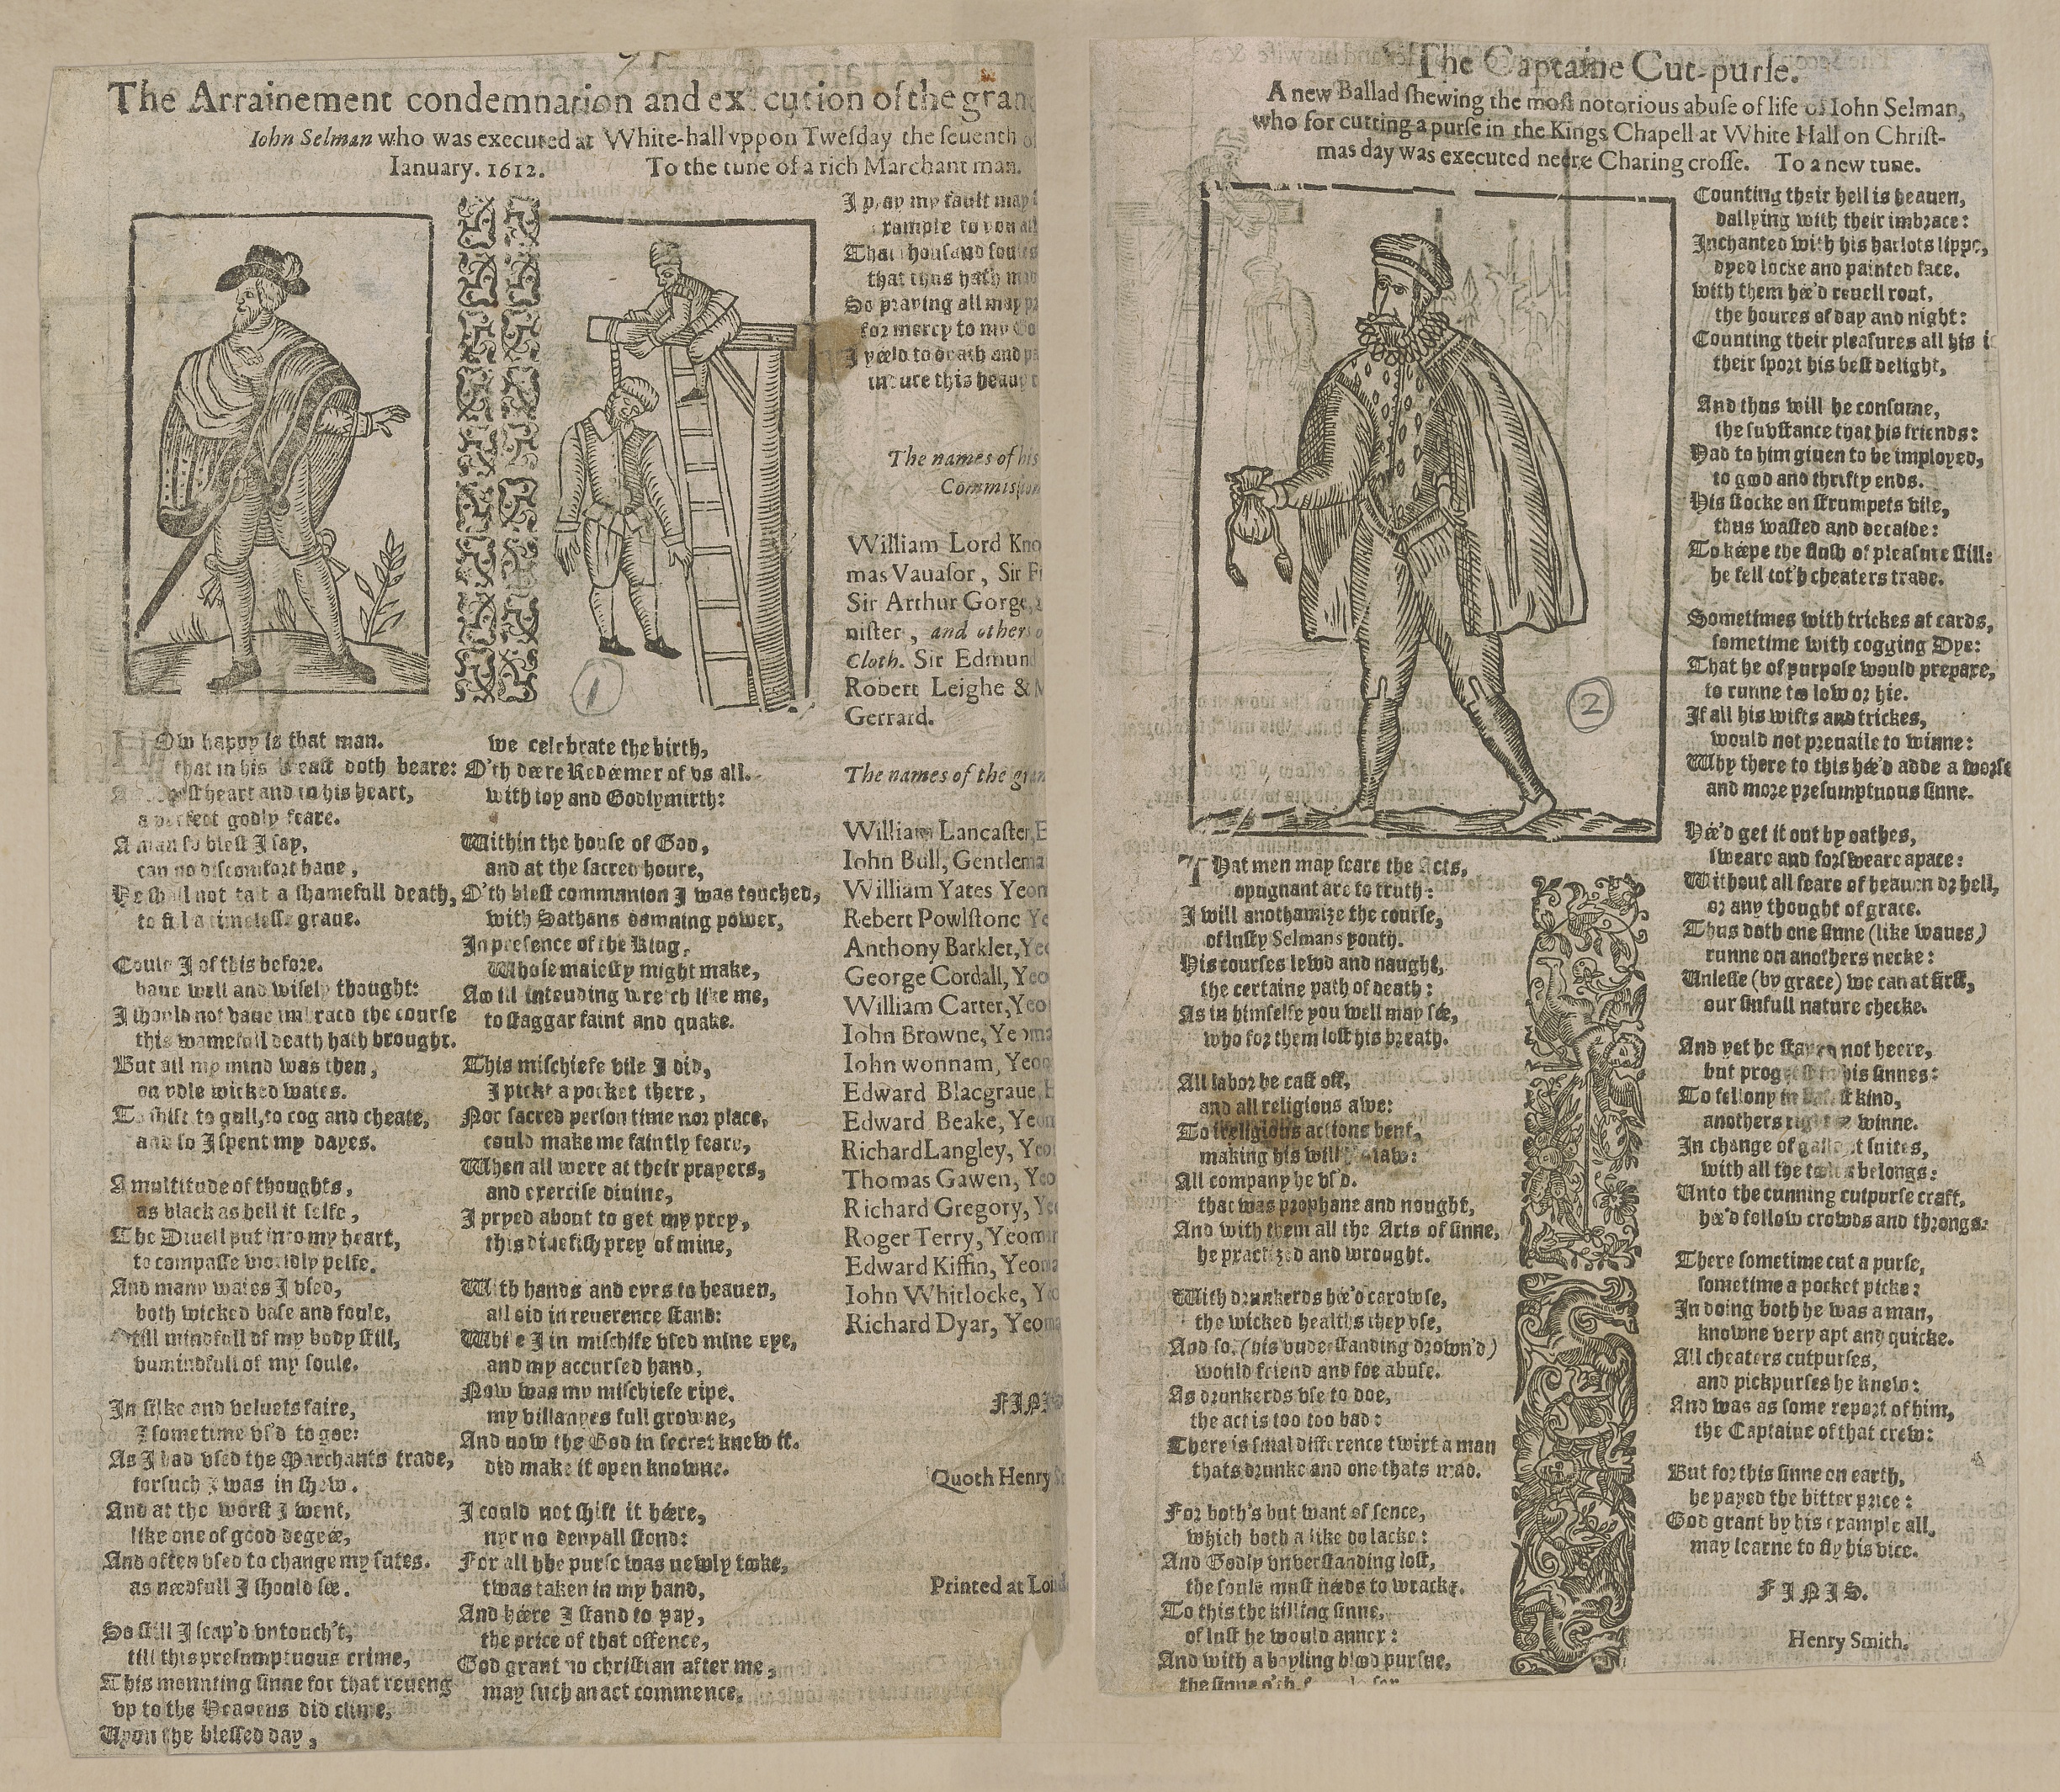 The Arrainement condemnation and execution of the gran
Iohn Selman who was executed at White-hall vppon Twesday the seuenth of
Ianuary. 1612. To the tune of a rich Marchant man.
How happy is that man.
that in his breast doth beare:
heart and in his heart,
a perfect godly feare.
A man so blest I say,
can no discomfort haue,
He shall not tast a shamefull death,
to fil a timelesse graue.
Could I of this before.
haue well and wisely thought:
I should not haue imbraco the course
this shamefull death hath brought.
But all my mind was then,
on ydle wicked waies.
To shift to gull, to cog and cheate,
and so I spent my dayes.
A multitude of thoughts,
as black as hell it selfe,
The Diuell put into my heart,
to compasse worldly pelfe.
And many waies I vsed,
both wicked base and foule,
Still mindfull of my body still,
vnmindfull of my soule.
In silke and veluets faire,
I sometime vs'd to goe:
As I had vsed the Marchants trade,
for such I was in shew.
And at the worst I went,
like one of good degree,
And often vsed to change my sutes.
as needfull I should see.
So still I scap'd vntouch't,
till this presumptuous crime,
This mounting sinne for that reueng
vp to the Heauens did clime,
Upon the blessed day,
we celebrate the birth,
O'th deere Redeemer of vs all.
with ioy and Godly mirth:
Within the house of God,
and at the sacred houre,
O'th blest communion I was touched,
with Sathans damning power,
In presence of the King,
Whose maiesty might make,
An ill intending wretch like me,
to staggar faint and quake.
This mischiefe vile I did,
I pickt a pocket there,
Nor sacred person time nor place,
could make me faintly feare,
When all were at their prayers,
and exercise diuine,
I pryed about to get my prey,
this diuelish prey of mine,
With hands and eyes to heauen,
all did in reuerence stand:
While I in mischife vsed mine eye,
and my accursed hand,
Now was my mischiefe ripe.
my villanyes full growne,
And now the God in secret knew it.
did make it open knowne.
I could not shift it heere,
nor no denyall stond:
For all the purse was newly tooke,
twas taken in my hand,
And heere I stand to pay,
the price of that offence,
God grant no christian after me,
may such an act commence,
I pray my fault may
xample to you all
That thousand soules
that thus hath
So praying all may
for mercy to my
I yeeld to death and
indure this heauy
The names of his
Commission
William Lord Kno
mas Vauasor, Sir
Sir Arthur Gorge,
nister, and others
Cloth. Sir Edmun
Robert Leighe &
Gerrard.
The names of the gran
William Lancaster,
Iohn Bull, Gentlema
William Yates Yeom
Rebert Powlstone
Anthony Barklet, Yeo
George Cordall, Yeo
William Carter, Yeo
Iohn Browne, Yeoma
Iohn wonnam, Yeo
Edward Blacgraue,
Edward Beake, Yeom
Richard Langley, Yeo
Thomas Gawen, Yeo
Richard Gregory, Yeo
Roger Terry, Yeom
Edward Kiffin, Yeoma
Iohn Whitlocke, Y
Richard Dyar, Yeoma
FINIS
Quoth Henry
Printed at Lond
1
The Captaine Cut-purse.
A new Ballad shewing the most notorious abuse of life of Iohn Selman,
who for cutting a purse in the Kings Chapell at White Hall on Christ-
mas day was executed neere Charing crosse. To a new tune.
2
That men may feare the Acts,
opugnant are to truth:
I will anothamize the course,
of lusty Selmans youth.
His courses lewd and naught,
the certaine path of death:
As in himselfe you well may see,
who for them lost his breath.
All labor he cast off,
and all religious awe:
To ireligious actions bent,
making his will law:
All company he vs'd.
that was prophane and nought,
And with them all the Arts of sinne,
he practized and wrought.
With drunkerds hee'd carowse,
the wicked healths they vse,
And so, (his vnderstanding drown'd)
would friend and foe abuse.
As drunkerds vse to doe,
the act is too too bad:
There is smal difference twixt a man
thats drunke and one thats mad.
For both's but want of sence,
which both a like do lacke:
And Godly vnderstanding lost,
the soule must needs to wracke.
To this the killing sinne,
of lust he would annex:
And with a boyling blood pursue,
the sinne o'th
Counting their hell is heauen,
dallying with their imbrace:
Inchanted with his harlots lippe,
dyed locke and painted face.
with them hee'd reuell rout,
the houres of day and night:
Counting their pleasures all his
their sport his best delight,
And thus will he consume,
the substance that his friends:
Had to him giuen to be imployed,
to good and thrifty ends.
His stocke on strumpets vile,
thus wasted and decaide:
To keepe the flush of pleasure still:
he fell tot'h cheaters trade.
Sometimes with trickes at cards,
sometime with cogging Dye:
That he of purpose would prepare,
to runne too low or hie.
If all his wifts and trickes,
would not preuaile to winne:
Why there to this hee'd adde a worse
and more presumptuous sinne.
Hee'd get it out by oathes,
sweare and forsweare apace:
Without all feare of heauen or hell,
or any thought of grace.
Thus doth one sinne (like waues)
runne on anothers necke:
Unlesse (by grace) we can at first,
our sinfull nature checke.
And yet he stayed not heere,
but his sinnes:
To fellony in kind,
anothers right to winne.
In change of gallant suites,
with all the belongs:
Unto the cunning cutpurse craft,
hee'd follow crowds and throngs.
There sometime cut a purse,
sometime a pocket picke:
In doing both he was a man,
knowne very apt and quicke.
All cheaters cutpurses,
and pickpurses he knew:
And was as some report of him,
the Captaine of that crew:
But for this sinne on earth,
he payed the bitter price:
God grant by his example all,
may learne to fly his vice.
FINIS.
Henry Smith.